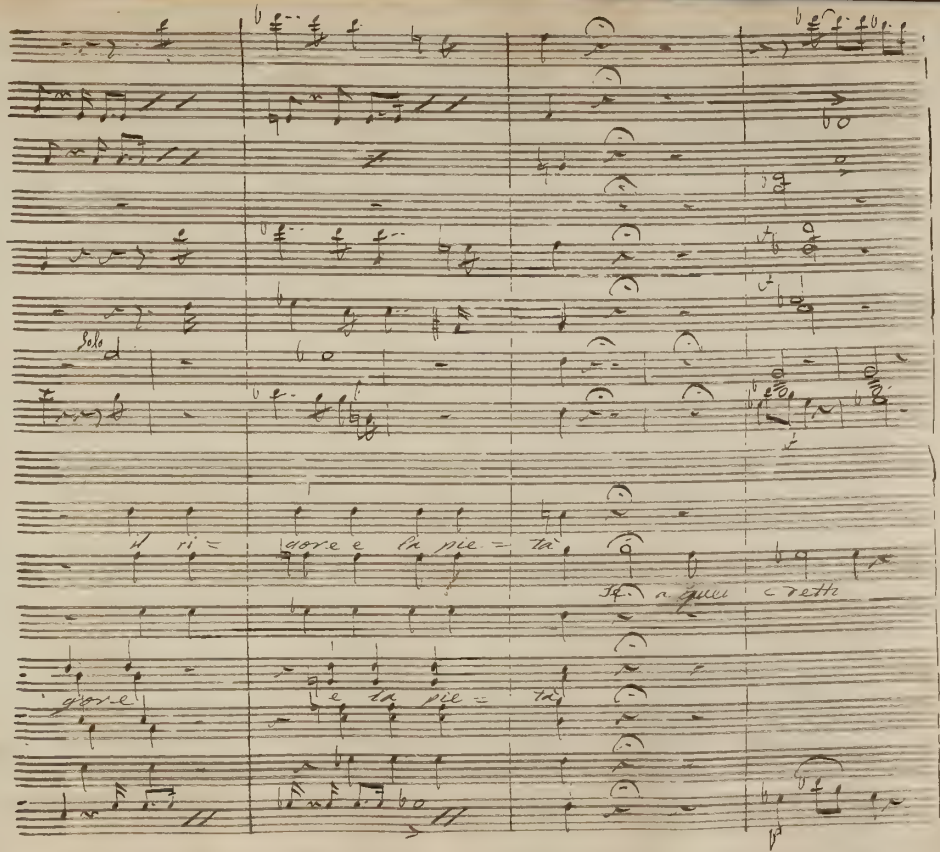 Solo
il ri = gore e la pie = tà
Se a quei
gore e la pie = tà